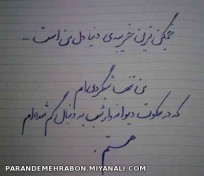 غمگین ترین غریبه ی دنیا دل من است
من تنها شبگردی ام
که در سکوت دیوانه وارش به دنبال گم شده ام
هستم
PARANDEMEHRABON.MIYANALI.COM